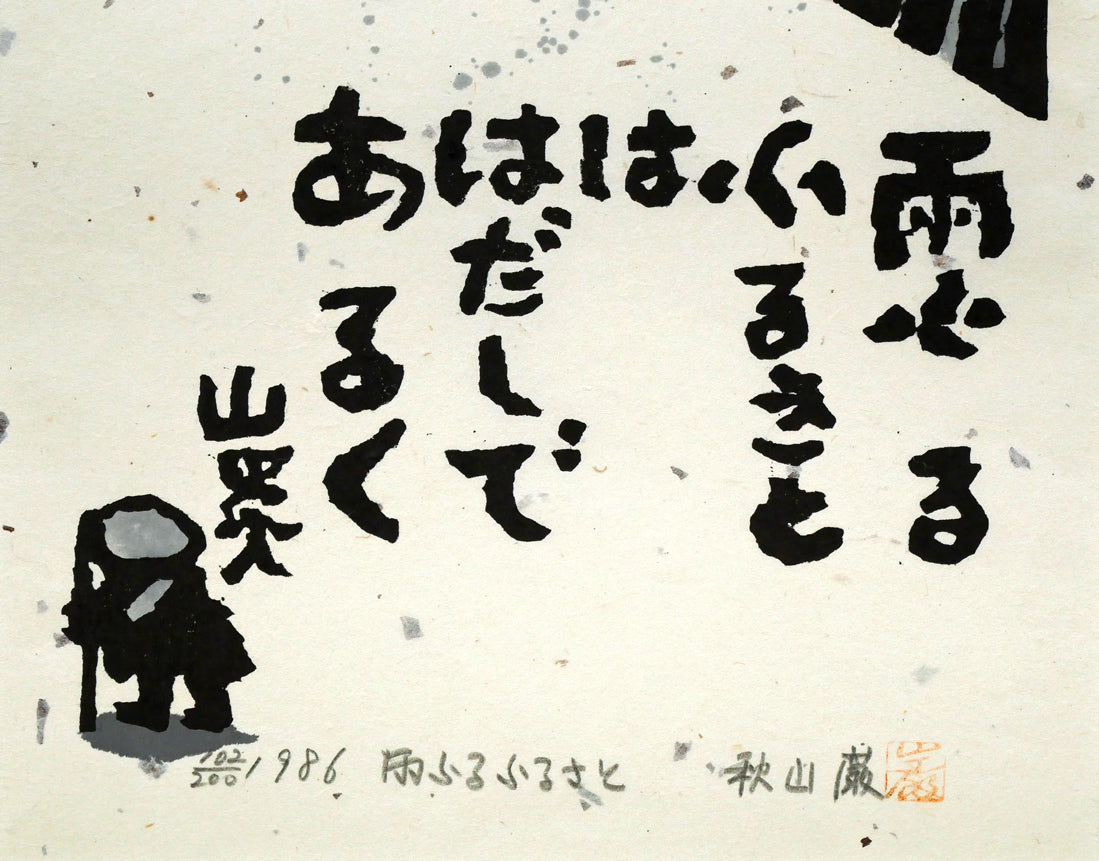 雨ふる
ふるさと
は
はだしで
あるく
山
102/200 1986 雨ふるふるさと 秋山巌